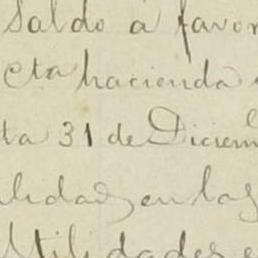 Saldo á favor
cta hacienda
ta 31 de Diciem
lidad en las
Utilidades e